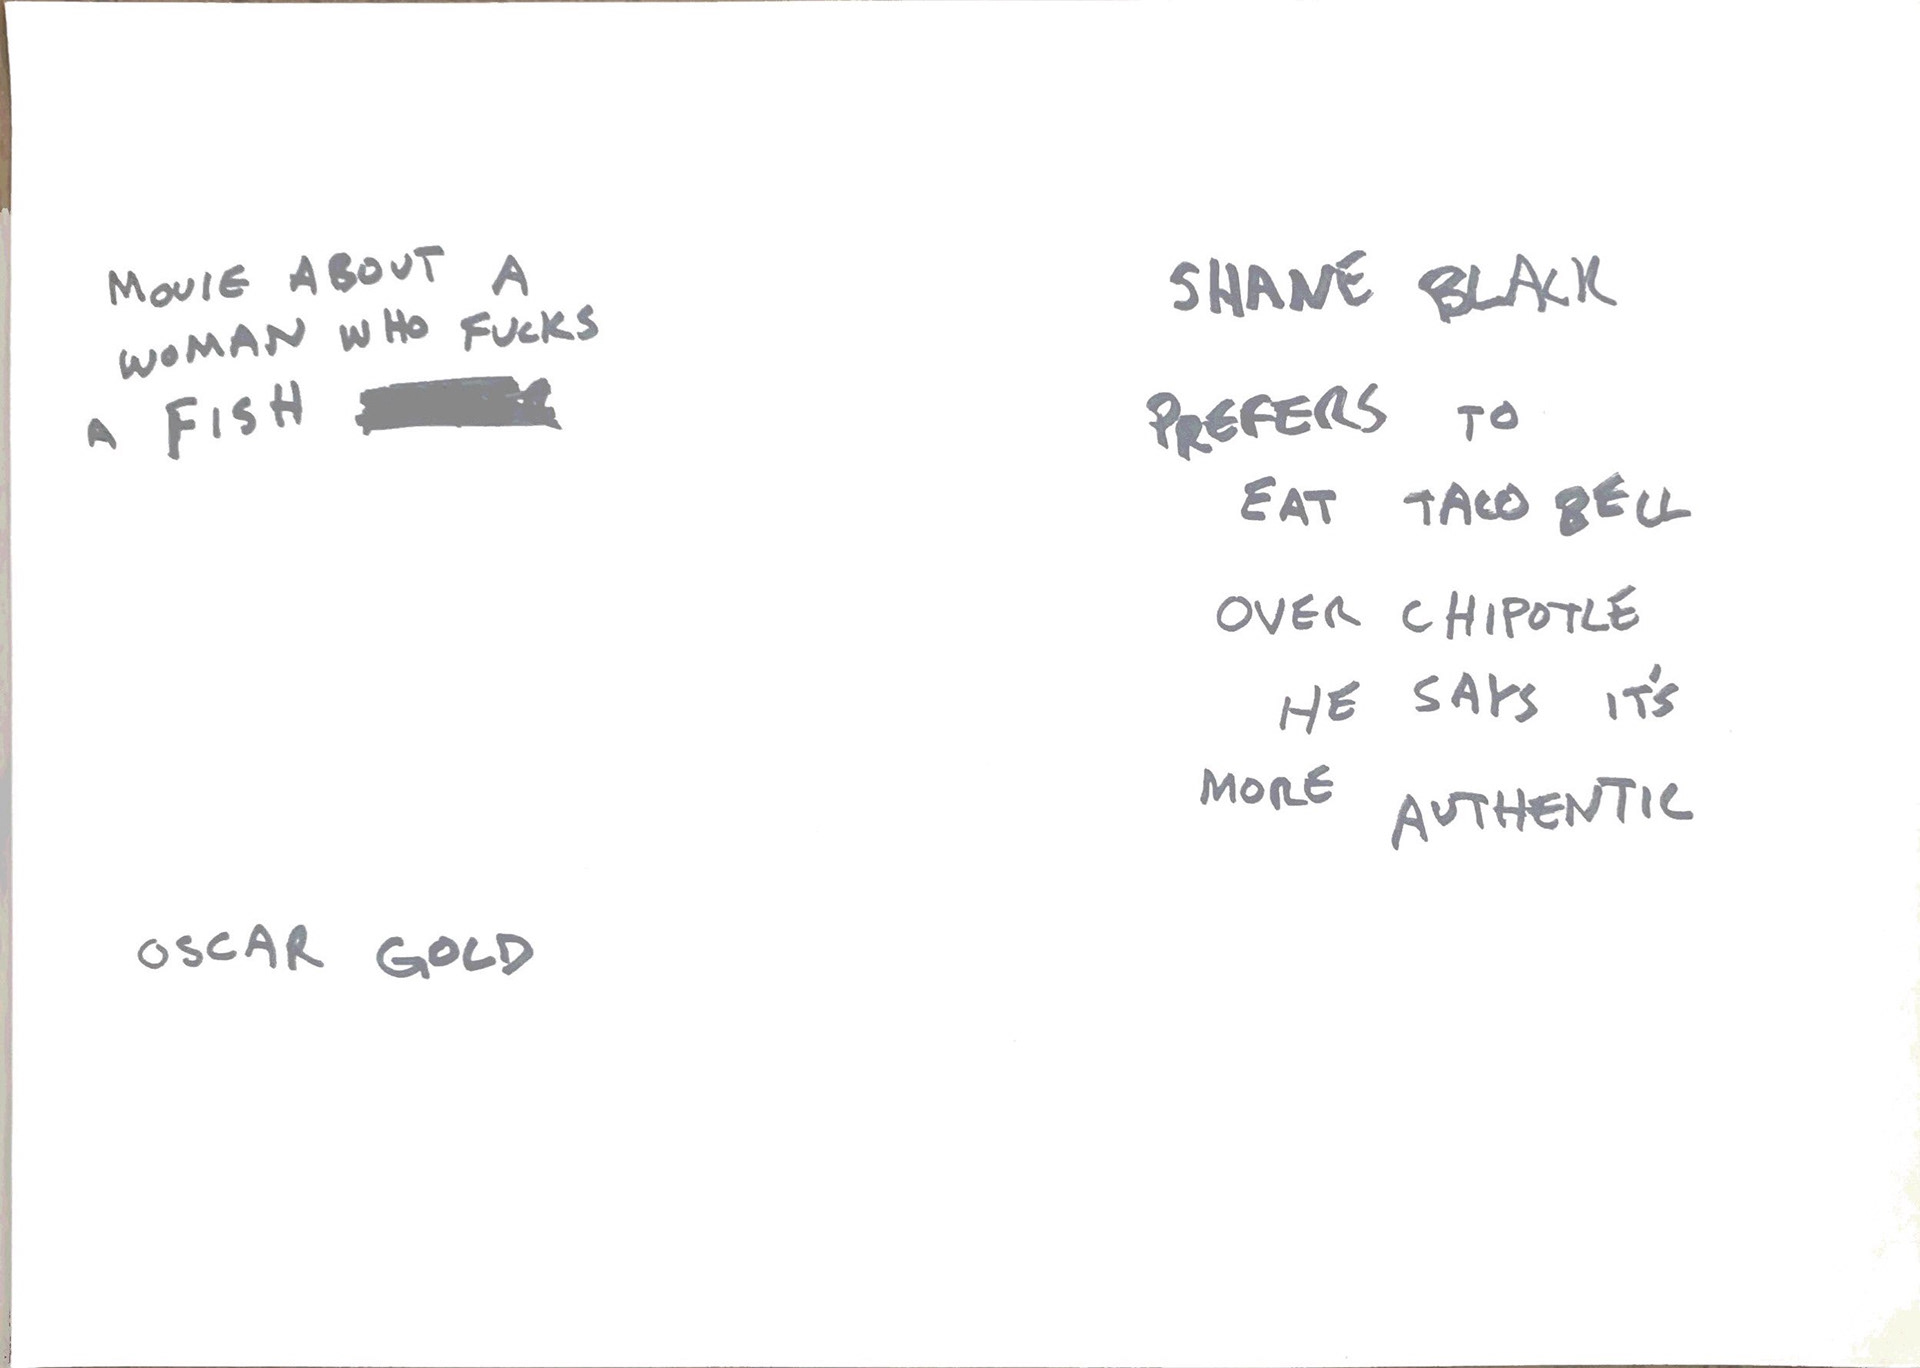 MOVIE ABOUT A
WOMAN WHO FUCKS
A FISH
OSCAR GOLD
SHANE BLACK
PREFERS TO
EAT TACO BELL
OVER CHIPOTLE
HE SAYS IT'S
MORE AUTHENTIC